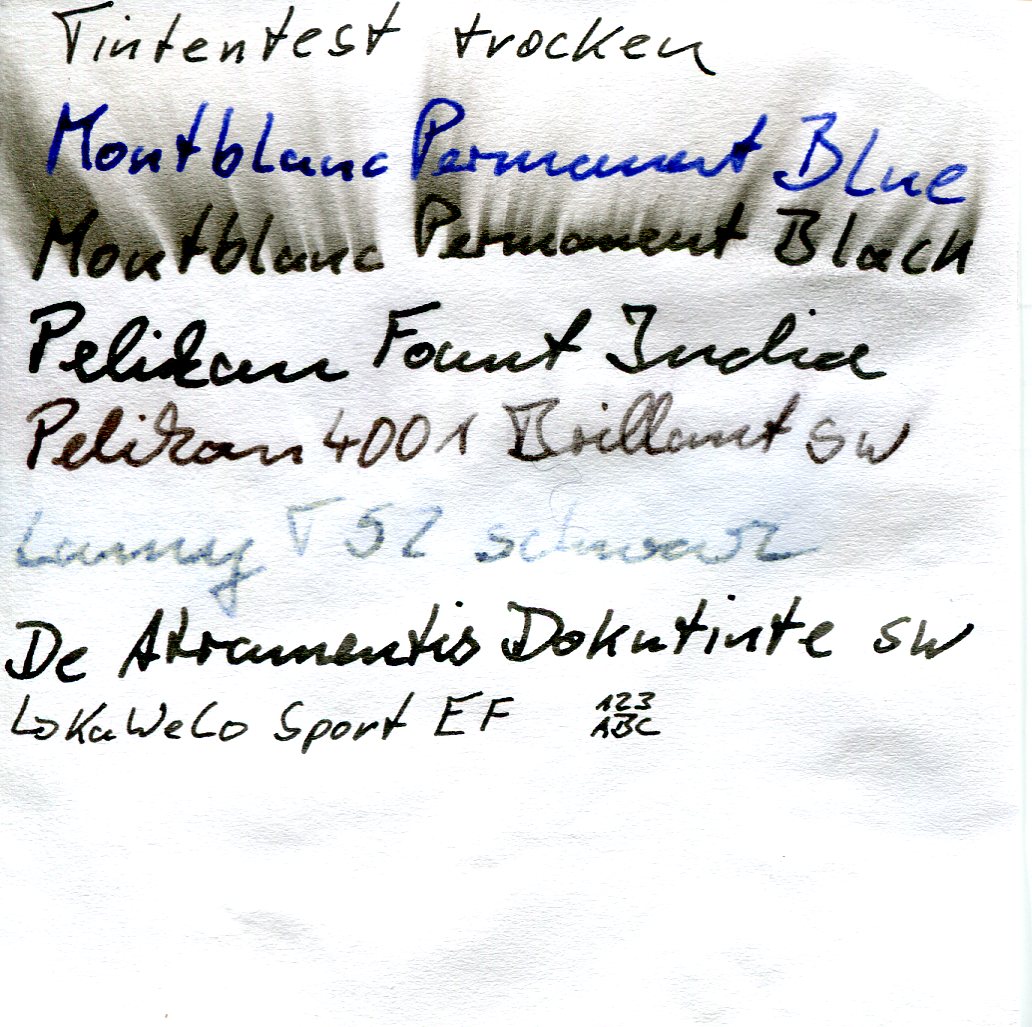 Tintentest trocken
Montblanc Permanent Blue
Montblanc Permanent Black
Pelikan Fount India
Pelikan 4001 Brillant sw
Lamy T52 schwarz
De Atramentis Dokutinte sw
LoKaWeLo Sport EF 123
ABC